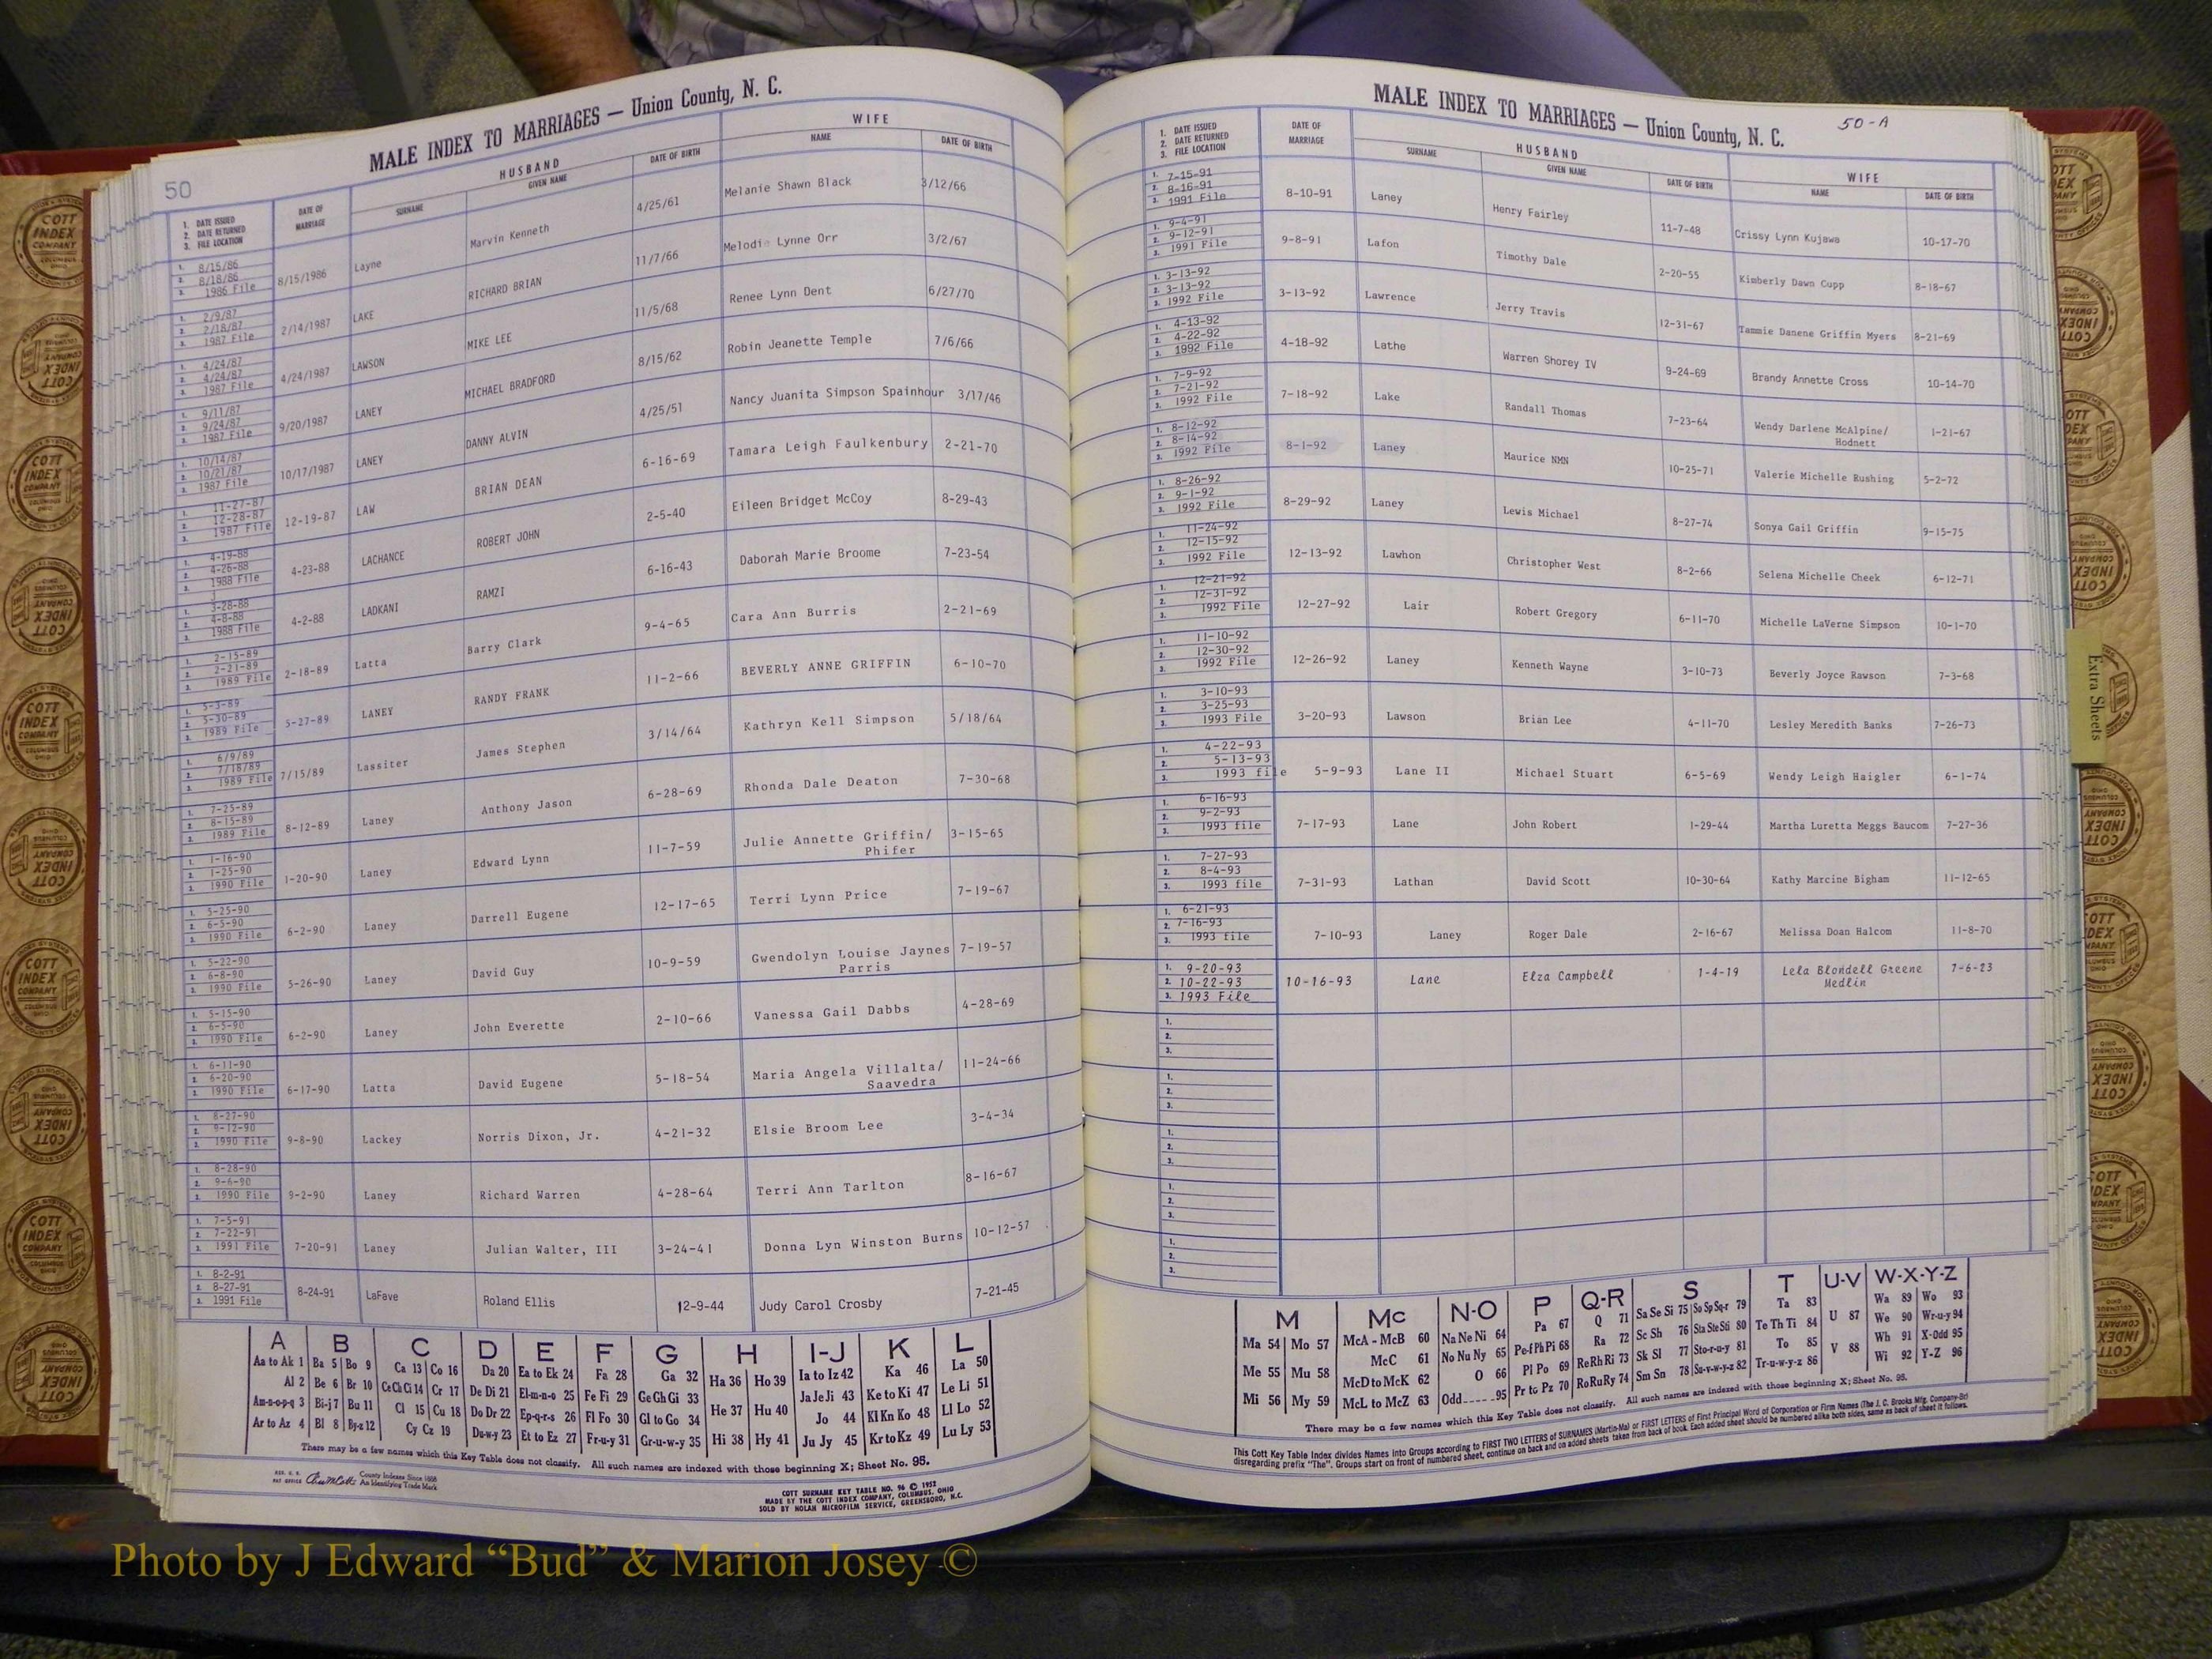 50
MALE INDEX TO MARRIAGES — Union County, N. C.
1. DATE ISSUED 2. DATE RETURNED 3. FILE LOCATION
DATE OF MARRIAGE
HUSBAND
SURNAME GIVEN NAME DATE OF BIRTH
WIFE
NAME DATE OF BIRTH
1. 8/15/86 2. 8/18/86 3. 1986 File 8/15/1986 Layne Marvin Kenneth 4/25/61 Melanie Shawn Black 3/12/66
1. 2/9/87 2. 2/18/87 3. 1987 File 2/14/1987 LAKE RICHARD BRIAN 11/7/66 Melodie Lynne Orr 3/2/67
1. 4/24/87 2. 4/24/87 3. 1987 File 4/24/1987 LAWSON MIKE LEE 11/5/68 Renee Lynn Dent 6/27/70
1. 9/11/87 2. 9/24/87 3. 1987 File 9/20/1987 LANEY MICHAEL BRADFORD 8/15/62 Robin Jeanette Temple 7/6/66
1. 10/14/87 2. 10/21/87 3. 1987 File 10/17/1987 LANEY DANNY ALVIN 4/25/51 Nancy Juanita Simpson Spainhour 3/17/46
1. 11-27-87 2. 12-28-87 3. 1987 File 12-19-87 LAW BRIAN DEAN 6-16-69 Tamara Leigh Faulkenbury 2-21-70
1. 4-19-88 2. 4-26-88 3. 1988 File 4-23-88 LACHANCE ROBERT JOHN 2-5-40 Eileen Bridget McCoy 8-29-43
1. 3-28-88 2. 4-8-88 3. 1988 File 4-2-88 LADKANI RAMZI 6-16-43 Daborah Marie Broome 7-23-54
1. 2-15-89 2. 2-21-89 3. 1989 File 2-18-89 Latta Barry Clark 9-4-65 Cara Ann Burris 2-21-69
1. 5-3-89 2. 5-30-89 3. 1989 File 5-27-89 LANEY RANDY FRANK 11-2-66 BEVERLY ANNE GRIFFIN 6-10-70
1. 6/9/89 2. 7/18/89 3. 1989 File 7/15/89 Lassiter James Stephen 3/14/64 Kathryn Kell Simpson 5/18/64
1. 7-25-89 2. 8-15-89 3. 1989 File 8-12-89 Laney Anthony Jason 6-28-69 Rhonda Dale Deaton 7-30-68
1. 1-16-90 2. 1-25-90 3. 1990 File 1-20-90 Laney Edward Lynn 11-7-59 Julie Annette Griffin/ Phifer 3-15-65
1. 5-25-90 2. 6-5-90 3. 1990 File 6-2-90 Laney Darrell Eugene 12-17-65 Terri Lynn Price 7-19-67
1. 5-22-90 2. 6-8-90 3. 1990 File 5-26-90 Laney David Guy 10-9-59 Gwendolyn Louise Jaynes Parris 7-19-57
1. 5-15-90 2. 6-5-90 3. 1990 File 6-2-90 Laney John Everette 2-10-66 Vanessa Gail Dabbs 4-28-69
1. 6-11-90 2. 6-20-90 3. 1990 File 6-17-90 Latta David Eugene 5-18-54 Maria Angela Villalta/ Saavedra 11-24-66
1. 8-27-90 2. 9-12-90 3. 1990 File 9-8-90 Lackey Norris Dixon, Jr. 4-21-32 Elsie Broom Lee 3-4-34
1. 8-28-90 2. 9-6-90 3. 1990 File 9-2-90 Laney Richard Warren 4-28-64 Terri Ann Tarlton 8-16-67
1. 7-5-91 2. 7-22-91 3. 1991 File 7-20-91 Laney Julian Walter, III 3-24-41 Donna Lyn Winston Burns 10-12-57
1. 8-2-91 2. 8-27-91 3. 1991 File 8-24-91 LaFave Roland Ellis 12-9-44 Judy Carol Crosby 7-21-45
A B C D E F G H I-J K L
Aa to Ak 1 Ba 5 Bo 9 Ca 13 Co 16 Da 20 Ea to Ek 24 Fa 28 Ga 32 Ha 36 Ho 39 Ia to Iz 42 Ka 46 La 50
Al 2 Be 6 Br 10 Ce Ch Ci 14 Cr 17 De Di 21 El-m-n-o 25 Fe Fi 29 Ge Gh Gi 33 He 37 Hu 40 Ja Je Ji 43 Ke to Ki 47 Le Li 51
Am-n-o-p-q 3 Bi-j 7 Bu 11 Cl 15 Cu 18 Do Dr 22 Ep-q-r-s 26 Fl Fo 30 Gl to Go 34 Hi 38 Hy 41 Jo 44 Kl Kn Ko 48 Ll Lo 52
Ar to Az 4 Bl 8 By-z 12 Cy Cz 19 Du-w-y 23 Et to Ez 27 Fr-u-y 31 Gr-u-w-y 35 Ju Jy 45 Kr to Kz 49 Lu Ly 53
There may be a few names which this Key Table does not classify. All such names are indexed with those beginning X; Sheet No. 95.
REG. U. S. PAT OFFICE County Indexes Since 1888 An Identifying Trade Mark
COTT SURNAME KEY TABLE NO. 96 © 1952
MADE BY THE COTT INDEX COMPANY, COLUMBUS, OHIO
SOLD BY NOLAN MICROFILM SERVICE, GREENSBORO, N.C.
MALE INDEX TO MARRIAGES — Union County, N. C.
50-A
1. DATE ISSUED 2. DATE RETURNED 3. FILE LOCATION
DATE OF MARRIAGE
HUSBAND
SURNAME GIVEN NAME DATE OF BIRTH
WIFE
NAME DATE OF BIRTH
1. 7-15-91 2. 8-16-91 3. 1991 File 8-10-91 Laney Henry Fairley 11-7-48 Crissy Lynn Kujawa 10-17-70
1. 9-4-91 2. 9-12-91 3. 1991 File 9-8-91 Lafon Timothy Dale 2-20-55 Kimberly Dawn Cupp 8-18-67
1. 3-13-92 2. 3-13-92 3. 1992 File 3-13-92 Lawrence Jerry Travis 12-31-67 Tammie Danene Griffin Myers 8-21-69
1. 4-13-92 2. 4-22-92 3. 1992 File 4-18-92 Lathe Warren Shorey IV 9-24-69 Brandy Annette Cross 10-14-70
1. 7-9-92 2. 7-21-92 3. 1992 File 7-18-92 Lake Randall Thomas 7-23-64 Wendy Darlene McAlpine/ Hodnett 1-21-67
1. 8-12-92 2. 8-14-92 3. 1992 File 8-1-92 Laney Maurice NMN 10-25-71 Valerie Michelle Rushing 5-2-72
1. 8-26-92 2. 9-1-92 3. 1992 File 8-29-92 Laney Lewis Michael 8-27-74 Sonya Gail Griffin 9-15-75
1. 11-24-92 2. 12-15-92 3. 1992 File 12-13-92 Lawhon Christopher West 8-2-66 Selena Michelle Cheek 6-12-71
1. 12-21-92 2. 12-31-92 3. 1992 File 12-27-92 Lair Robert Gregory 6-11-70 Michelle LaVerne Simpson 10-1-70
1. 11-10-92 2. 12-30-92 3. 1992 File 12-26-92 Laney Kenneth Wayne 3-10-73 Beverly Joyce Rawson 7-3-68
1. 3-10-93 2. 3-25-93 3. 1993 File 3-20-93 Lawson Brian Lee 4-11-70 Lesley Meredith Banks 7-26-73
1. 4-22-93 2. 5-13-93 3. 1993 file 5-9-93 Lane II Michael Stuart 6-5-69 Wendy Leigh Haigler 6-1-74
1. 6-16-93 2. 9-2-93 3. 1993 file 7-17-93 Lane John Robert 1-29-44 Martha Luretta Meggs Baucom 7-27-36
1. 7-27-93 2. 8-4-93 3. 1993 file 7-31-93 Lathan David Scott 10-30-64 Kathy Marcine Bigham 11-12-65
1. 6-21-93 2. 7-16-93 3. 1993 file 7-10-93 Laney Roger Dale 2-16-67 Melissa Doan Halcom 11-8-70
1. 9-20-93 2. 10-22-93 3. 1993 File 10-16-93 Lane Elza Campbell 1-4-19 Lela Blondell Greene Medlin 7-6-23
1. 2. 3.
1. 2. 3.
1. 2. 3.
1. 2. 3.
1. 2. 3.
M Mc N-O P Q-R S T U-V W-X-Y-Z
Ma 54 Mo 57 McA - McB 60 Na Ne Ni 64 Pa 67 Q 71 Sa Se Si 75 So Sp Sq-r 79 Ta 83 U 87 Wa 89 Wo 93
Me 55 Mu 58 McC 61 No Nu Ny 65 Pe-f Ph Pi 68 Ra 72 Sc Sh 76 Sta Ste Sti 80 Te Th Ti 84 V 88 We 90 Wr-u-y 94
Mi 56 My 59 McD to McK 62 O 66 Pl Po 69 Re Rh Ri 73 Sk Sl 77 Sto-r-u-y 81 To 85 Wh 91 X-Odd 95
McL to McZ 63 Odd 95 Pr to Pz 70 Ro Ru Ry 74 Sm Sn 78 Su-v-w-y-z 82 Tr-u-w-y-z 86 Wi 92 Y-Z 96
There may be a few names which this Key Table does not classify. All such names are indexed with those beginning X; Sheet No. 95.
This Cott Key Table Index divides Names into Groups according to FIRST TWO LETTERS of SURNAMES (Martin-Ma) or FIRST LETTERS of First Principal Word of Corporation or Firm Names (The J. C. Brooks Mfg. Company-Br)
disregarding prefix "The". Groups start on front of numbered sheet, continue on back and on added sheets taken from back of book. Each added sheet should be numbered alike both sides, same as back of sheet it follows.
Extra Sheets
COTT INDEX COMPANY COLUMBUS OHIO
Photo by J Edward “Bud” & Marion Josey ©